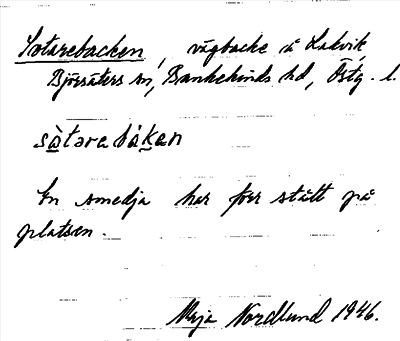 Sotarebacken, vägbacke å Lakvik,
Björsäters sn, Bankekinds hd, Östg. l.
sòtarebákan
En smedja har förr stått på
platsen.
Maja Nordlund 1946.